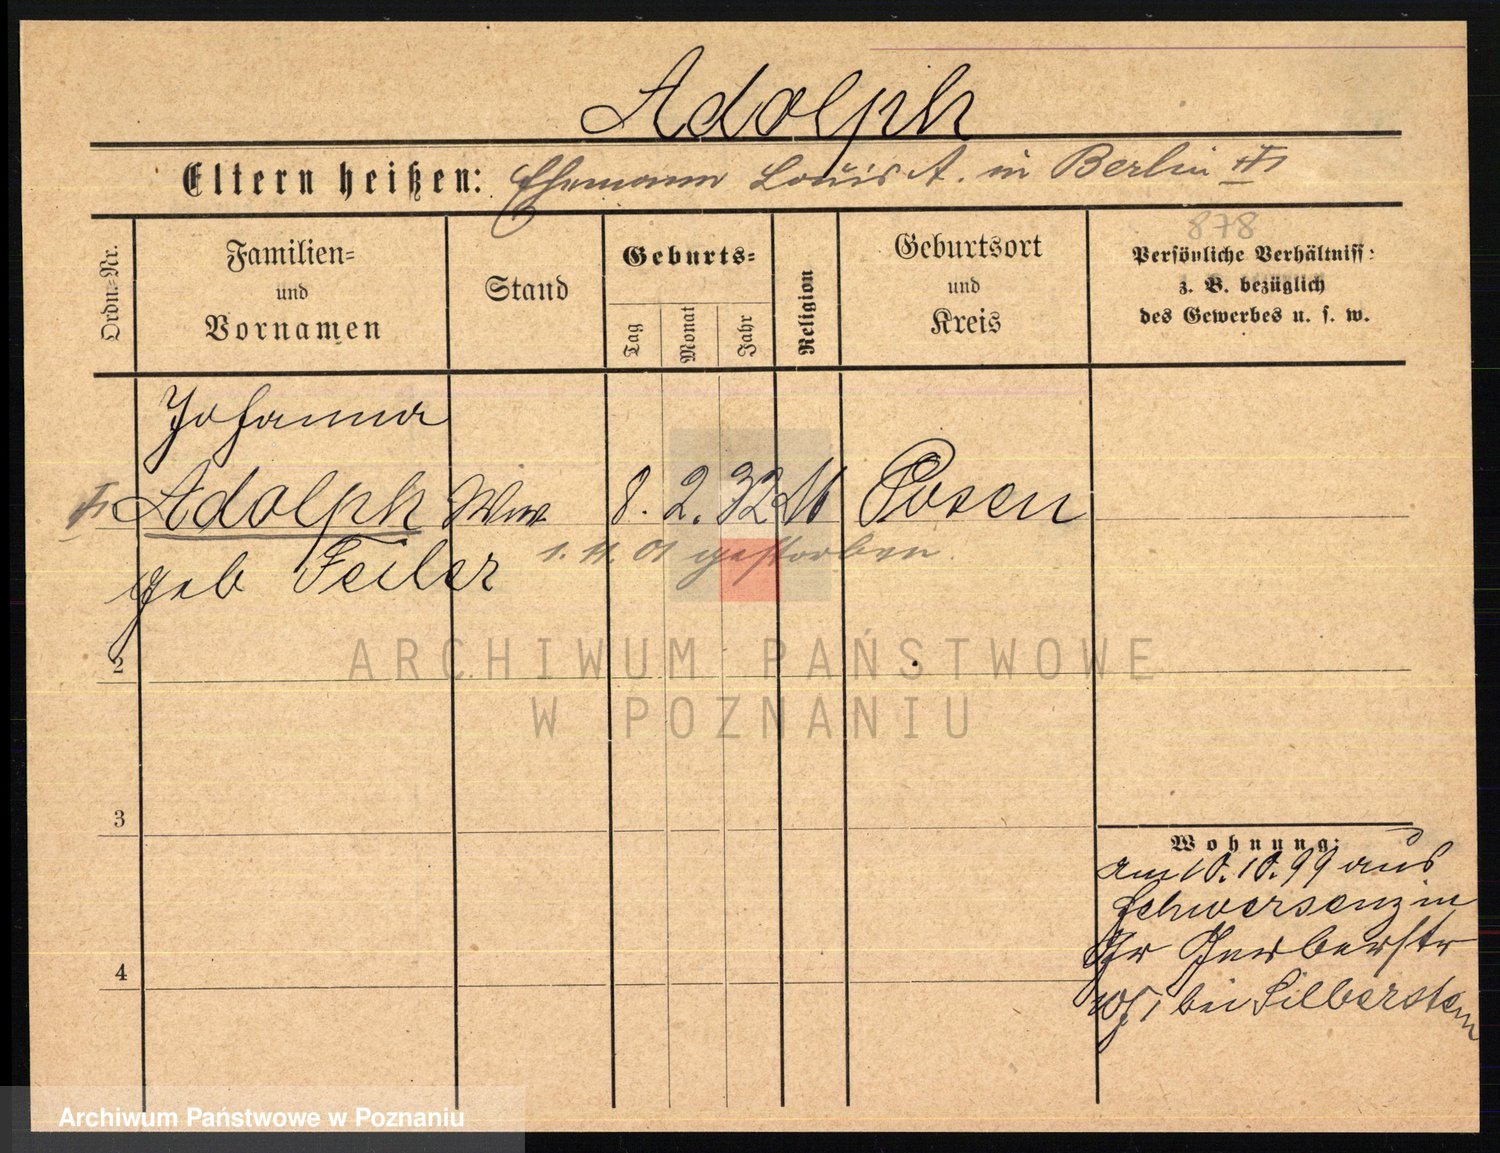 Adolph
Eltern heißen: Ehemann Louis A. in Berlin
878
Ordn.-Nr.
Familien-
und
Vornamen
Stand
Geburts-
Tag
Monat
Jahr
Religion
Geburtsort
und
Kreis
Persönliche Verhältniss:
z. B. bezüglich
des Gewerbes u. s. w.
Johanna
Adolph Wwe 8. 2. 32 Posen
1. 11. 01 gestorben.
geb Feiler
2
ARCHIWUM PAŃSTWOWE
W POZNANIU
3
Wohnung:
am 10.10.99 aus
Schwersenz in
Gr Gerberstr
bei Silberstein
4
Archiwum Państwowe w Poznaniu